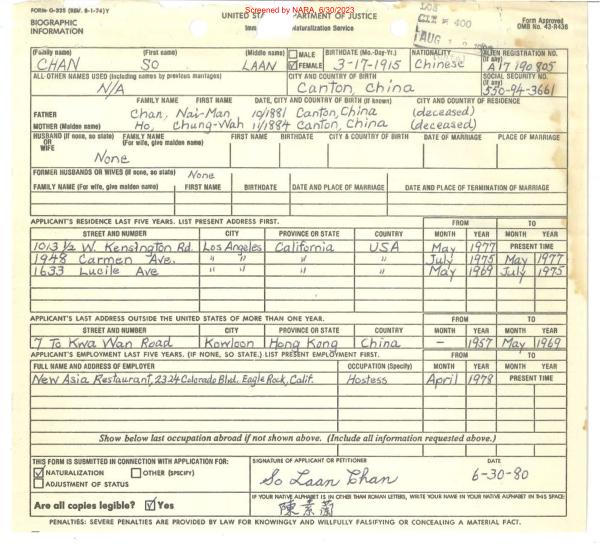 Screened by NARA, 6/30/2023
FORM G-325 (REV. 8-1-74)Y
UNITED STA DEPARTMENT OF JUSTICE
Form Approved
OMB No. 43-R436
BIOGRAPHIC INFORMATION
Imm Naturalization Service
LOS
400
AUG
(Family name) (First name) (Middle name) MALE FEMALE BIRTHDATE (Mo.-Day-Yr.) NATIONALITY ALIEN REGISTRATION NO. (If any)
CHAN SO LAAN ☑ FEMALE 3-17-1915 Chinese A17 190 805
ALL OTHER NAMES USED (Including names by previous marriages) CITY AND COUNTRY OF BIRTH SOCIAL SECURITY NO. (If any)
N/A Canton, China 550-94-3661
FAMILY NAME FIRST NAME DATE, CITY AND COUNTRY OF BIRTH (If known) CITY AND COUNTRY OF RESIDENCE
FATHER Chan, Nai-Man 10/1881 Canton, China (deceased)
MOTHER (Maiden name) Ho, Chung-Wah 11/1884 Canton, China (deceased)
HUSBAND (If none, so state) OR WIFE FAMILY NAME (For wife, give maiden name) FIRST NAME BIRTHDATE CITY & COUNTRY OF BIRTH DATE OF MARRIAGE PLACE OF MARRIAGE
None
FORMER HUSBANDS OR WIVES (If none, so state) None
FAMILY NAME (For wife, give maiden name) FIRST NAME BIRTHDATE DATE AND PLACE OF MARRIAGE DATE AND PLACE OF TERMINATION OF MARRIAGE
APPLICANT'S RESIDENCE LAST FIVE YEARS. LIST PRESENT ADDRESS FIRST. FROM TO
STREET AND NUMBER CITY PROVINCE OR STATE COUNTRY MONTH YEAR MONTH YEAR
1013 1/2 W. Kensington Rd. Los Angeles California USA May 1977 PRESENT TIME
1948 Carmen Ave. " " " " July 1975 May 1977
1633 Lucile Ave " " " " May 1969 July 1975
APPLICANT'S LAST ADDRESS OUTSIDE THE UNITED STATES OF MORE THAN ONE YEAR. FROM TO
STREET AND NUMBER CITY PROVINCE OR STATE COUNTRY MONTH YEAR MONTH YEAR
7 To Kwa Wan Road Kowloon Hong Kong China — 1957 May 1969
APPLICANT'S EMPLOYMENT LAST FIVE YEARS. (IF NONE, SO STATE.) LIST PRESENT EMPLOYMENT FIRST. FROM TO
FULL NAME AND ADDRESS OF EMPLOYER OCCUPATION (Specify) MONTH YEAR MONTH YEAR
New Asia Restaurant, 2324 Colorado Blvd. Eagle Rock, Calif. Hostess April 1978 PRESENT TIME
Show below last occupation abroad if not shown above. (Include all information requested above.)
THIS FORM IS SUBMITTED IN CONNECTION WITH APPLICATION FOR: SIGNATURE OF APPLICANT OR PETITIONER DATE
☑ NATURALIZATION ☐ OTHER (SPECIFY)
☐ ADJUSTMENT OF STATUS
So Laan Chan 6-30-80
Are all copies legible? ☑ Yes
IF YOUR NATIVE ALPHABET IS IN OTHER THAN ROMAN LETTERS, WRITE YOUR NAME IN YOUR NATIVE ALPHABET IN THIS SPACE:
陳素蘭
PENALTIES: SEVERE PENALTIES ARE PROVIDED BY LAW FOR KNOWINGLY AND WILLFULLY FALSIFYING OR CONCEALING A MATERIAL FACT.